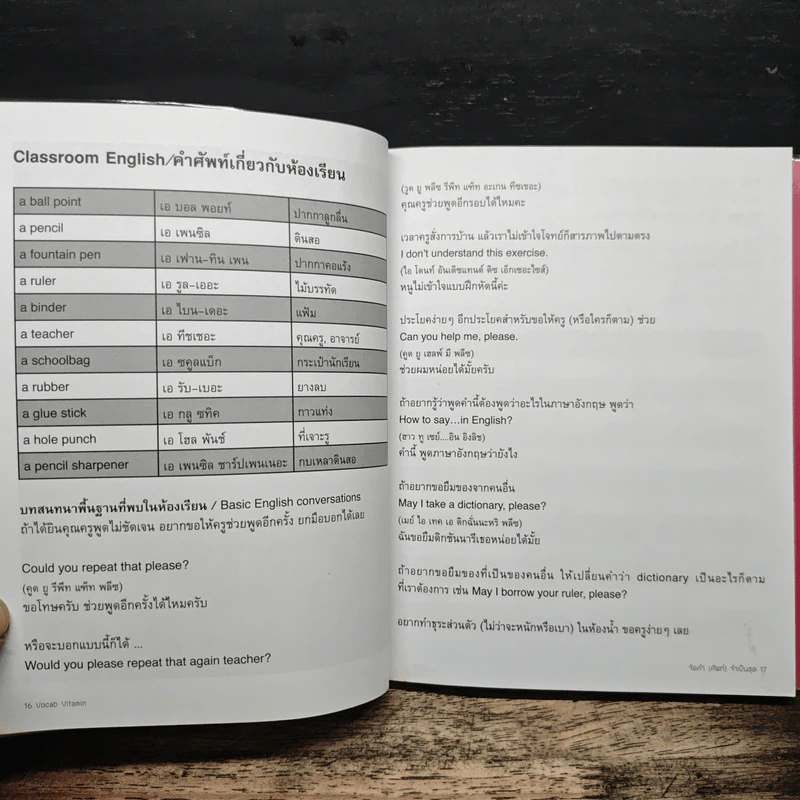 Classroom English/คำศัพท์เกี่ยวกับห้องเรียน
a ball point เอ บอล พอยท์ ปากกาลูกลื่น
a pencil เอ เพนซิล ดินสอ
a fountain pen เอ เฟาน-ทิน เพน ปากกาคอแร้ง
a ruler เอ รูล-เออะ ไม้บรรทัด
a binder เอ ไบน-เดอะ แฟ้ม
a teacher เอ ทีชเชอะ คุณครู, อาจารย์
a schoolbag เอ ซคูลแบ็ก กระเป๋านักเรียน
a rubber เอ รับ-เบอะ ยางลบ
a glue stick เอ กลู ซทิค กาวแท่ง
a hole punch เอ โฮล พันช์ ที่เจาะรู
a pencil sharpener เอ เพนซิล ชาร์ปเพนเนอะ กบเหลาดินสอ
บทสนทนาพื้นฐานที่พบในห้องเรียน / Basic English conversations
ถ้าได้ยินคุณครูพูดไม่ชัดเจน อยากขอให้ครูช่วยพูดอีกครั้ง ยกมือบอกได้เลย
Could you repeat that please?
(คูด ยู รีพีท แซ็ท พลีซ)
ขอโทษครับ ช่วยพูดอีกครั้งได้ไหมครับ
หรือจะบอกแบบนี้ก็ได้ ...
Would you please repeat that again teacher?
16 Vocab Vitamin
(วูด ยู พลีซ รีพีท แซ็ท อะเกน ทีชเชอะ)
คุณครูช่วยพูดอีกรอบได้ไหมคะ
เวลาครูสั่งการบ้าน แล้วเราไม่เข้าใจโจทย์ก็สารภาพไปตามตรง
I don't understand this exercise.
(ไอ โดนท์ อันเดิซแทนด์ ดิซ เอ็กเซอะไซส์)
หนูไม่เข้าใจแบบฝึกหัดนี้ค่ะ
ประโยคง่ายๆ อีกประโยคสำหรับขอให้ครู (หรือใครก็ตาม) ช่วย
Can you help me, please.
(คูด ยู เฮลพ์ มี พลีซ)
ช่วยผมหน่อยได้มั้ยครับ
ถ้าอยากรู้ว่าพูดคำนี้ต้องพูดว่าอะไรในภาษาอังกฤษ พูดว่า
How to say…in English?
(ฮาว ทู เซย์....อีน อิงลิช)
คำนี้ พูดภาษาอังกฤษว่ายังไง
ถ้าอยากขอยืมของจากคนอื่น
May I take a dictionary, please?
(เมย์ ไอ เทค เอ ดิกฉันนะหรี พลีซ)
ฉันขอยืมดิกชันนารีเธอหน่อยได้มั้ย
ถ้าอยากขอยืมของที่เป็นของคนอื่น ให้เปลี่ยนคำว่า dictionary เป็นอะไรก็ตาม
ที่เราต้องการ เช่น May I borrow your ruler, please?
อยากทำธุระส่วนตัว (ไม่ว่าจะหนักหรือเบา) ในห้องน้ำ ขอครูง่ายๆ เลย
ร้อยคำ (ศัพท์) จำเป็นสุด 17